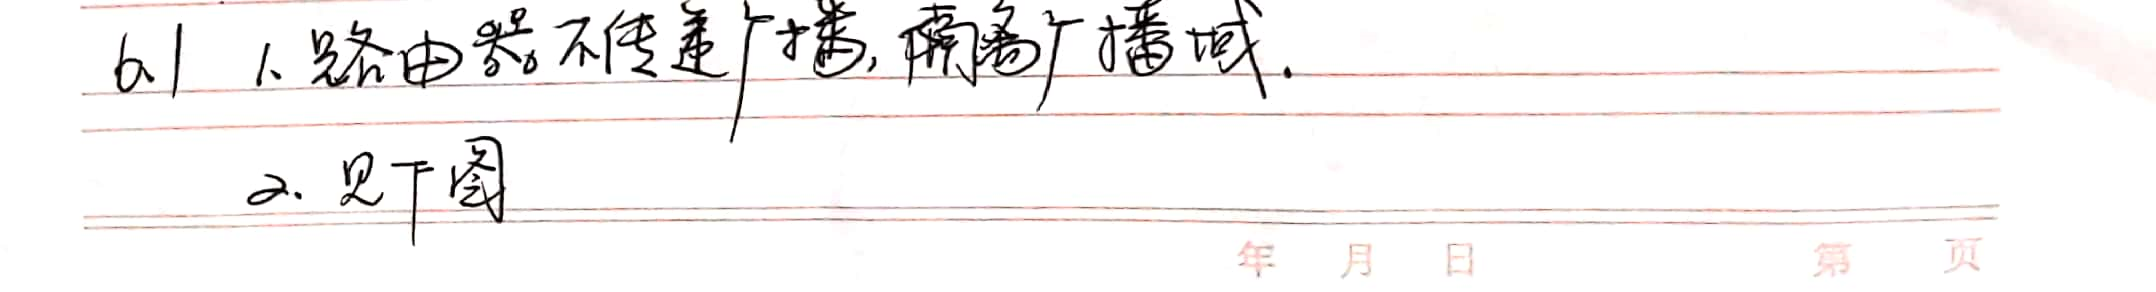 6.1 1、路由器不传递广播，隔离广播域.
2. 见下图
年 月 日 第 页